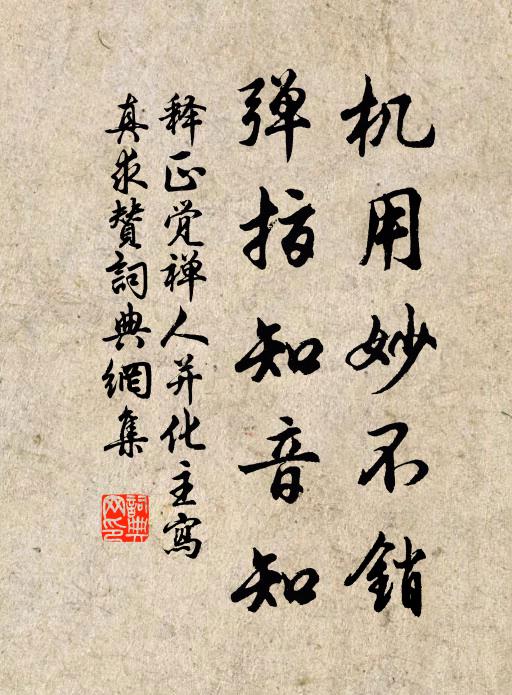 机用妙不销
弹指知音知
释正觉禅人并化主寫
真求贊詞典網集
詞典网印